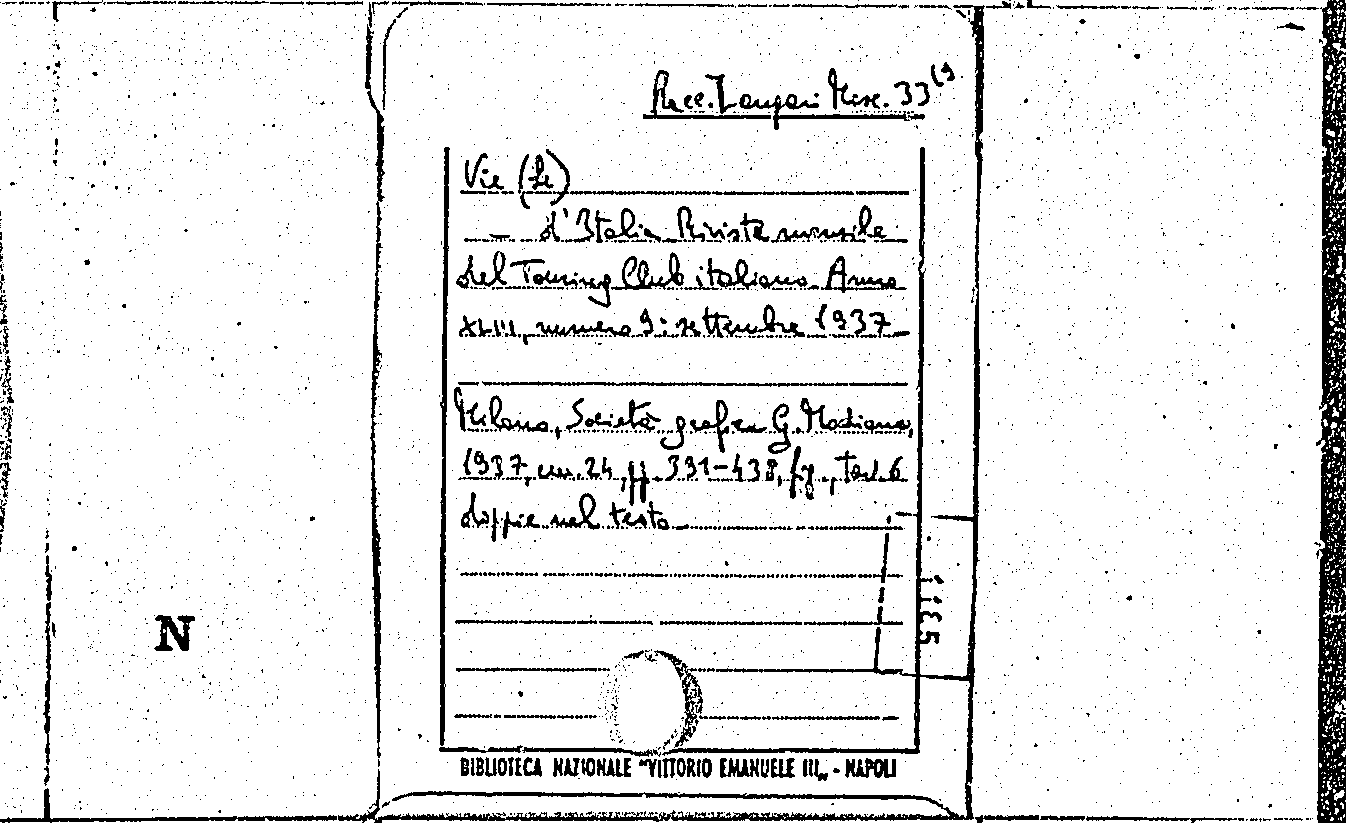 Racc. Zangari Misc. 33(9
Vie (Le)
— d'Italia Rivista mensile
del Touring Club italiano Anno
XLIII, numero 9: settembre 1937
Milano, Società grafica G. Modiano,
1937, cm. 24, pp. 331-438, fig., tav. 6
doppie nel testo
N
BIBLIOTECA NAZIONALE "VITTORIO EMANUELE III„ - NAPOLI